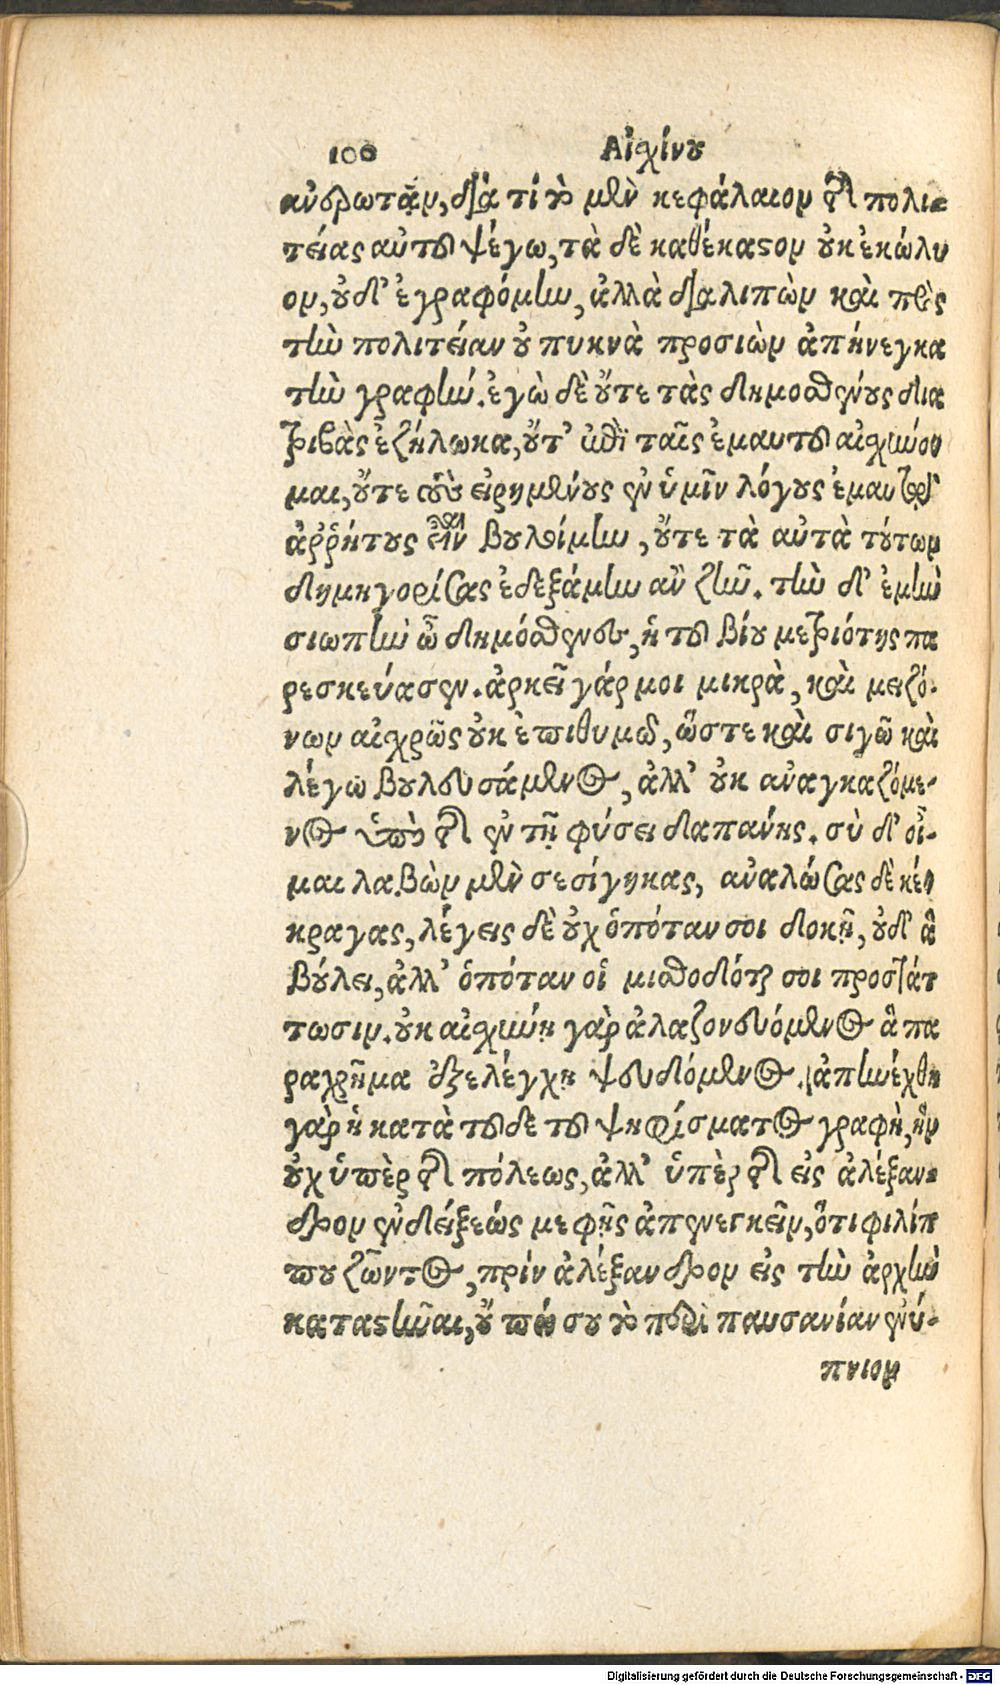 100 Αἰσχίνου
ἀνερωτᾷν, διὰ τί τὸ μὲν κεφάλαιον τῆς πολι-
τείας αὐτοῦ ψέγω, τὰ δὲ καθέκαστον οὐκ ἐκώλυ
ον, οὐδ' ἐγραφόμην, ἀλλὰ διαλιπὼν καὶ πρὸς
τὴν πολιτείαν οὐ πυκνὰ προσιὼν ἀπήνεγκα
τὴν γραφήν. ἐγὼ δὲ οὔτε τὰς δημοσθένους δια
τριβὰς ἐζήλωκα, οὔτ' ἐπὶ ταῖς ἐμαυτοῦ αἰσχύνο
μαι, οὔτε τοὺς εἰρημένους ἐν ὑμῖν λόγους ἐμαυτῷ
ἀῤῥήτους εἶναι βουλοίμην, οὔτε τὰ αὐτὰ τούτων
δημηγορήσας ἐδεξάμην ἂν ζῆν. τὴν δ' ἐμὴν
σιωπὴν ὦ δημόσθενες, ἡ τοῦ βίου μετριότης πα
ρεσκεύασεν. ἀρκεῖ γάρ μοι μικρὰ, καὶ μειζό-
νων αἰσχρῶς οὐκ ἐπιθυμῶ, ὥστε καὶ σιγῶ καὶ
λέγω βουλευσάμενος, ἀλλ' οὐκ ἀναγκαζόμε-
νος ὑπὸ τῆς ἐν τῇ φύσει δαπάνης. σὺ δ' οἶ-
μαι λαβὼν μὲν σεσίγηκας, ἀναλώσας δὲ κέ
κραγας, λέγεις δὲ οὐχ ὁπόταν σοι δοκῇ, οὐδ' ἃ
βούλει, ἀλλ' ὁπόταν οἱ μισθοδόται σοι προστάτ
τωσιν. οὐκ αἰσχύνῃ γὰρ ἀλαζονευόμενος ἃ πα
ραχρῆμα ἐξελέγχῃ ψευδόμενος. ἀπηνέχθη
γὰρ ἡ κατὰ τοῦδε τοῦ ψηφίσματος γραφὴ, ἣν
οὐχ ὑπὲρ τῆς πόλεως, ἀλλ' ὑπὲρ τῆς εἰς ἀλέξαν-
δρον ἐνδείξεώς με φῂς ἀπενεγκεῖν, ὅτι φιλίπ
που ζῶντος, πρὶν ἀλέξανδρον εἰς τὴν ἀρχὴν
καταστῆναι, οὔπω σου τὸ περὶ παυσανίαν ἐνύ-
πνιον
Digitalisierung gefördert durch die Deutsche Forschungsgemeinschaft - DFG